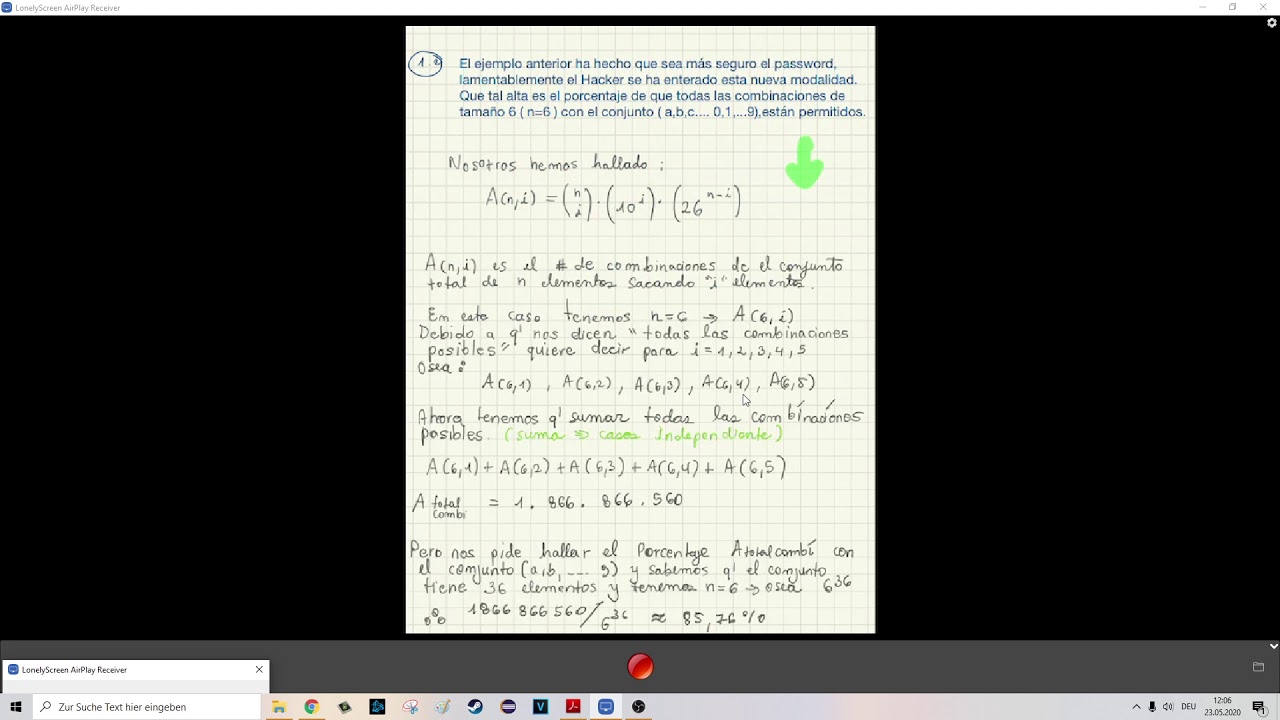 LonelyScreen AirPlay Receiver
1.2
El ejemplo anterior ha hecho que sea más seguro el password,
lamentablemente el Hacker se ha enterado esta nueva modalidad.
Que tal alta es el porcentaje de que todas las combinaciones de
tamaño 6 ( n=6 ) con el conjunto ( a,b,c.... 0,1,...9),están permitidos.
Nosotros hemos hallado :
A(n,i) = (n i) · (10^i) · (26^n-i)
A(n,i) es el # de combinaciones de el conjunto
total de n elementos sacando "i" elementos.
En este caso tenemos n=6 => A(6,i)
Debido a q' nos dicen "todas las combinaciones
posibles" quiere decir para i=1,2,3,4,5
Osea :
A(6,1) , A(6,2) , A(6,3) , A(6,4) , A(6,5)
Ahora tenemos q' sumar todas las combínacíones
posibles. (suma => casos independiente)
A(6,1) + A(6,2) + A(6,3) + A(6,4) + A(6,5)
A total = 1. 866. 866. 560
combi
Pero nos pide hallar el Porcentaje Atotalcombí con
el conjunto (a,b, ... 9) y sabemos q' el conjunto
tiene 36 elementos y tenemos n=6 => osea 6^36
% 1866 866 560/6^36 ≈ 85,76%
LonelyScreen AirPlay Receiver
Zur Suche Text hier eingeben
DEU
12:06
23.05.2020